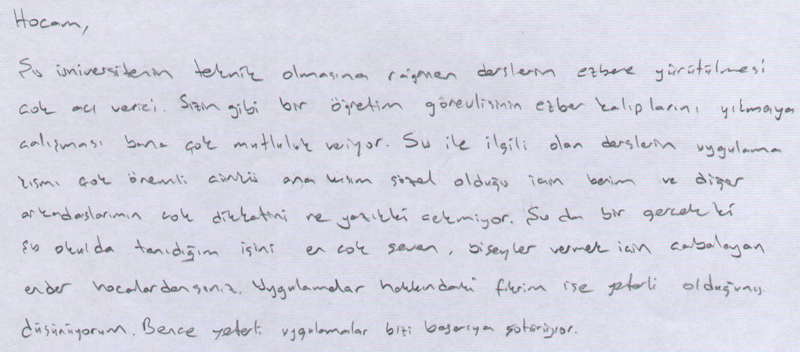 Hocam,
Şu üniversitenin teknik olmasına rağmen derslerin ezbere yürütülmesi
çok acı verici. Sizin gibi bir öğretim görevlisinin ezber kalıplarını yıkmaya
çalışması bana çok mutluluk veriyor. Su ile ilgili olan derslerin uygulama
kısmı çok önemli çünkü ana kısım sözel olduğu için benim ve diğer
arkadaşlarımın çok dikkatini ne yazıkki çekmiyor. Şu da bir gerçek ki
şu okulda tanıdığım işini en çok seven, bişeyler vermek için çabalayan
ender hocalardansınız. Uygulamalar hakkındaki fikrim ise yeterli olduğunu
düşünüyorum. Bence yeterli uygulamalar bizi başarıya götürüyor.